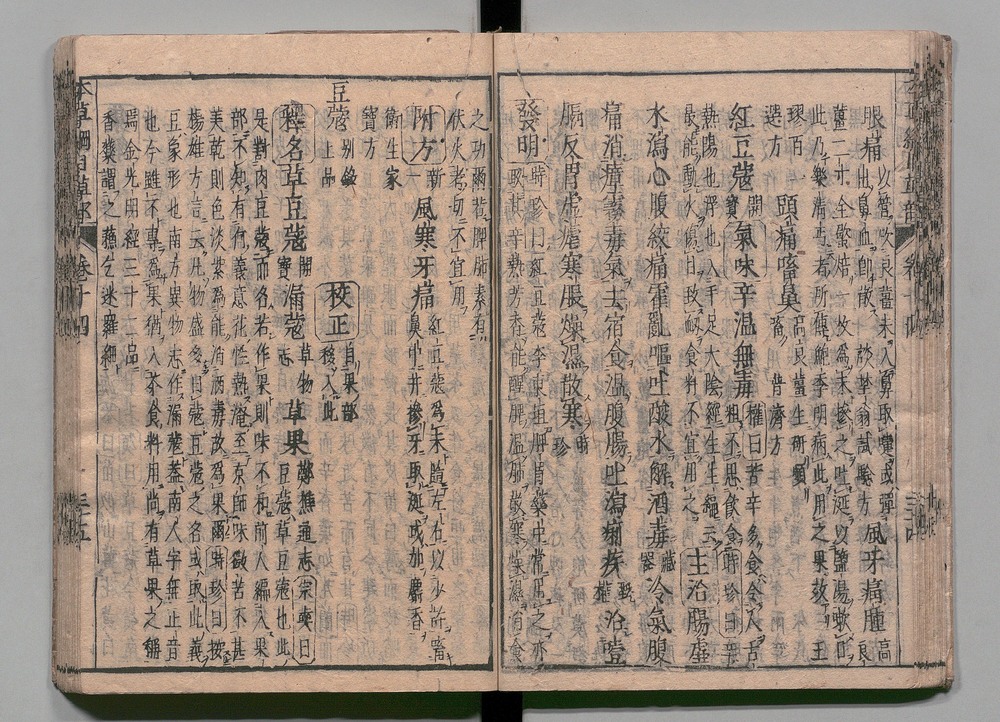 眼痛 以管吹良薑末入鼻取嚏或彈出鼻血卽散 談埜翁試驗方 風牙痛腫 高良
薑二寸全蠍焙一枚爲末摻之吐涎以鹽湯漱口
此乃樂淸丐者所傳鮑季明病此用之果效 王
璆百一
選方 頭痛嗃鼻 高良薑生研頻嗃 普濟方
紅豆蔻 開寶 氣味辛溫無毒 權曰苦辛多食令人舌
粗不思飮食時珍曰辛
熱陽也浮也入手足太陰經生生編云
最能動火傷目致衄食料不宜用之 主治腸虛
水瀉心腹絞痛霍亂嘔吐酸水解酒毒 藏器 冷氣腹
痛消瘴霧毒氣去宿食溫腹腸吐瀉痢疾 甄權 治噎
膈反胃虛瘧寒脹燥濕散寒 時珍
發明 時珍曰紅豆蔻李東垣脾胃藥中常用之亦
取其辛熱芳香能醒脾溫肺散寒燥濕消食
之功爾若脾肺素有
伏火者切不宜用
附方 新一 風寒牙痛 紅豆蔻爲末隨左右以少許嗃
鼻中幷摻牙取涎或加麝香
衞生家
寶方
豆蔻 別錄上品 校正 自果部移入此
釋名草豆蔻 開寶 漏蔻 異物志 草果 鄭樵通志 宗奭曰
豆蔻草豆蔻也此
是對肉豆蔻而名若作果則味不和前人編入果
部不知有何義意花性熱淹至京師味微苦不甚
美乾則色淡紫爲能消酒毒故爲果爾時珍曰按
楊雄方言云凡物盛多曰蔻豆蔻之名或取此義
豆象形也南方異物志作漏蔻蓋南人字無正音
也今雖不專爲果猶入茶食料用尙有草果之稱
焉金光明經三十二品
香藥謂之蘇乞迷羅細
本草綱目草部 卷十四 三十五